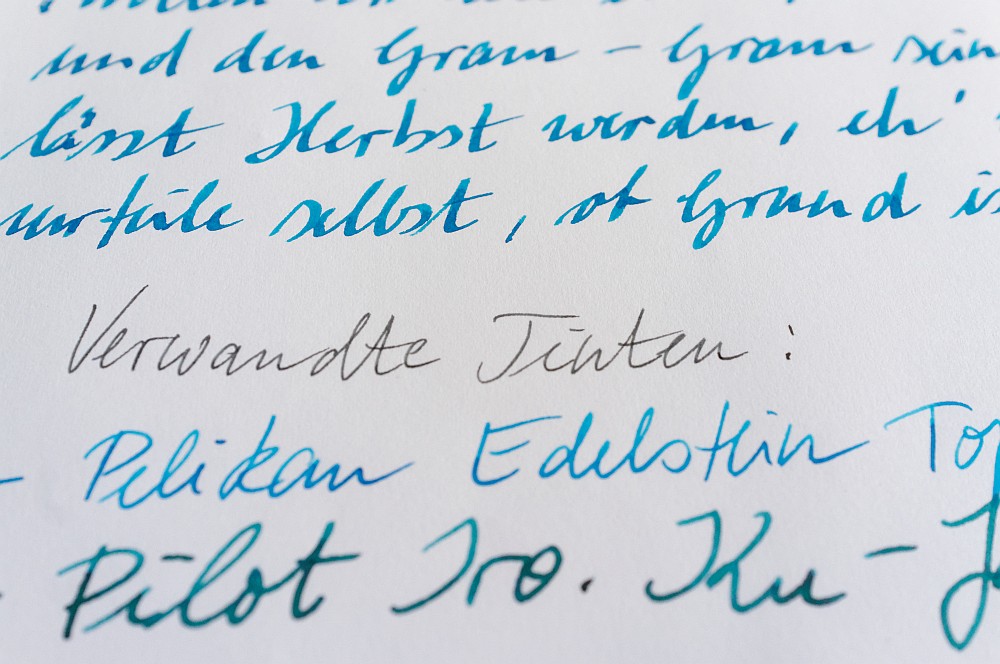 und den Gram – Gram sein
lässt Herbst werden, eh'
urteile selbst, ob Grund is
Verwandte Tinten:
- Pelikan Edelstein Top
- Pilot Iro. Ku - J